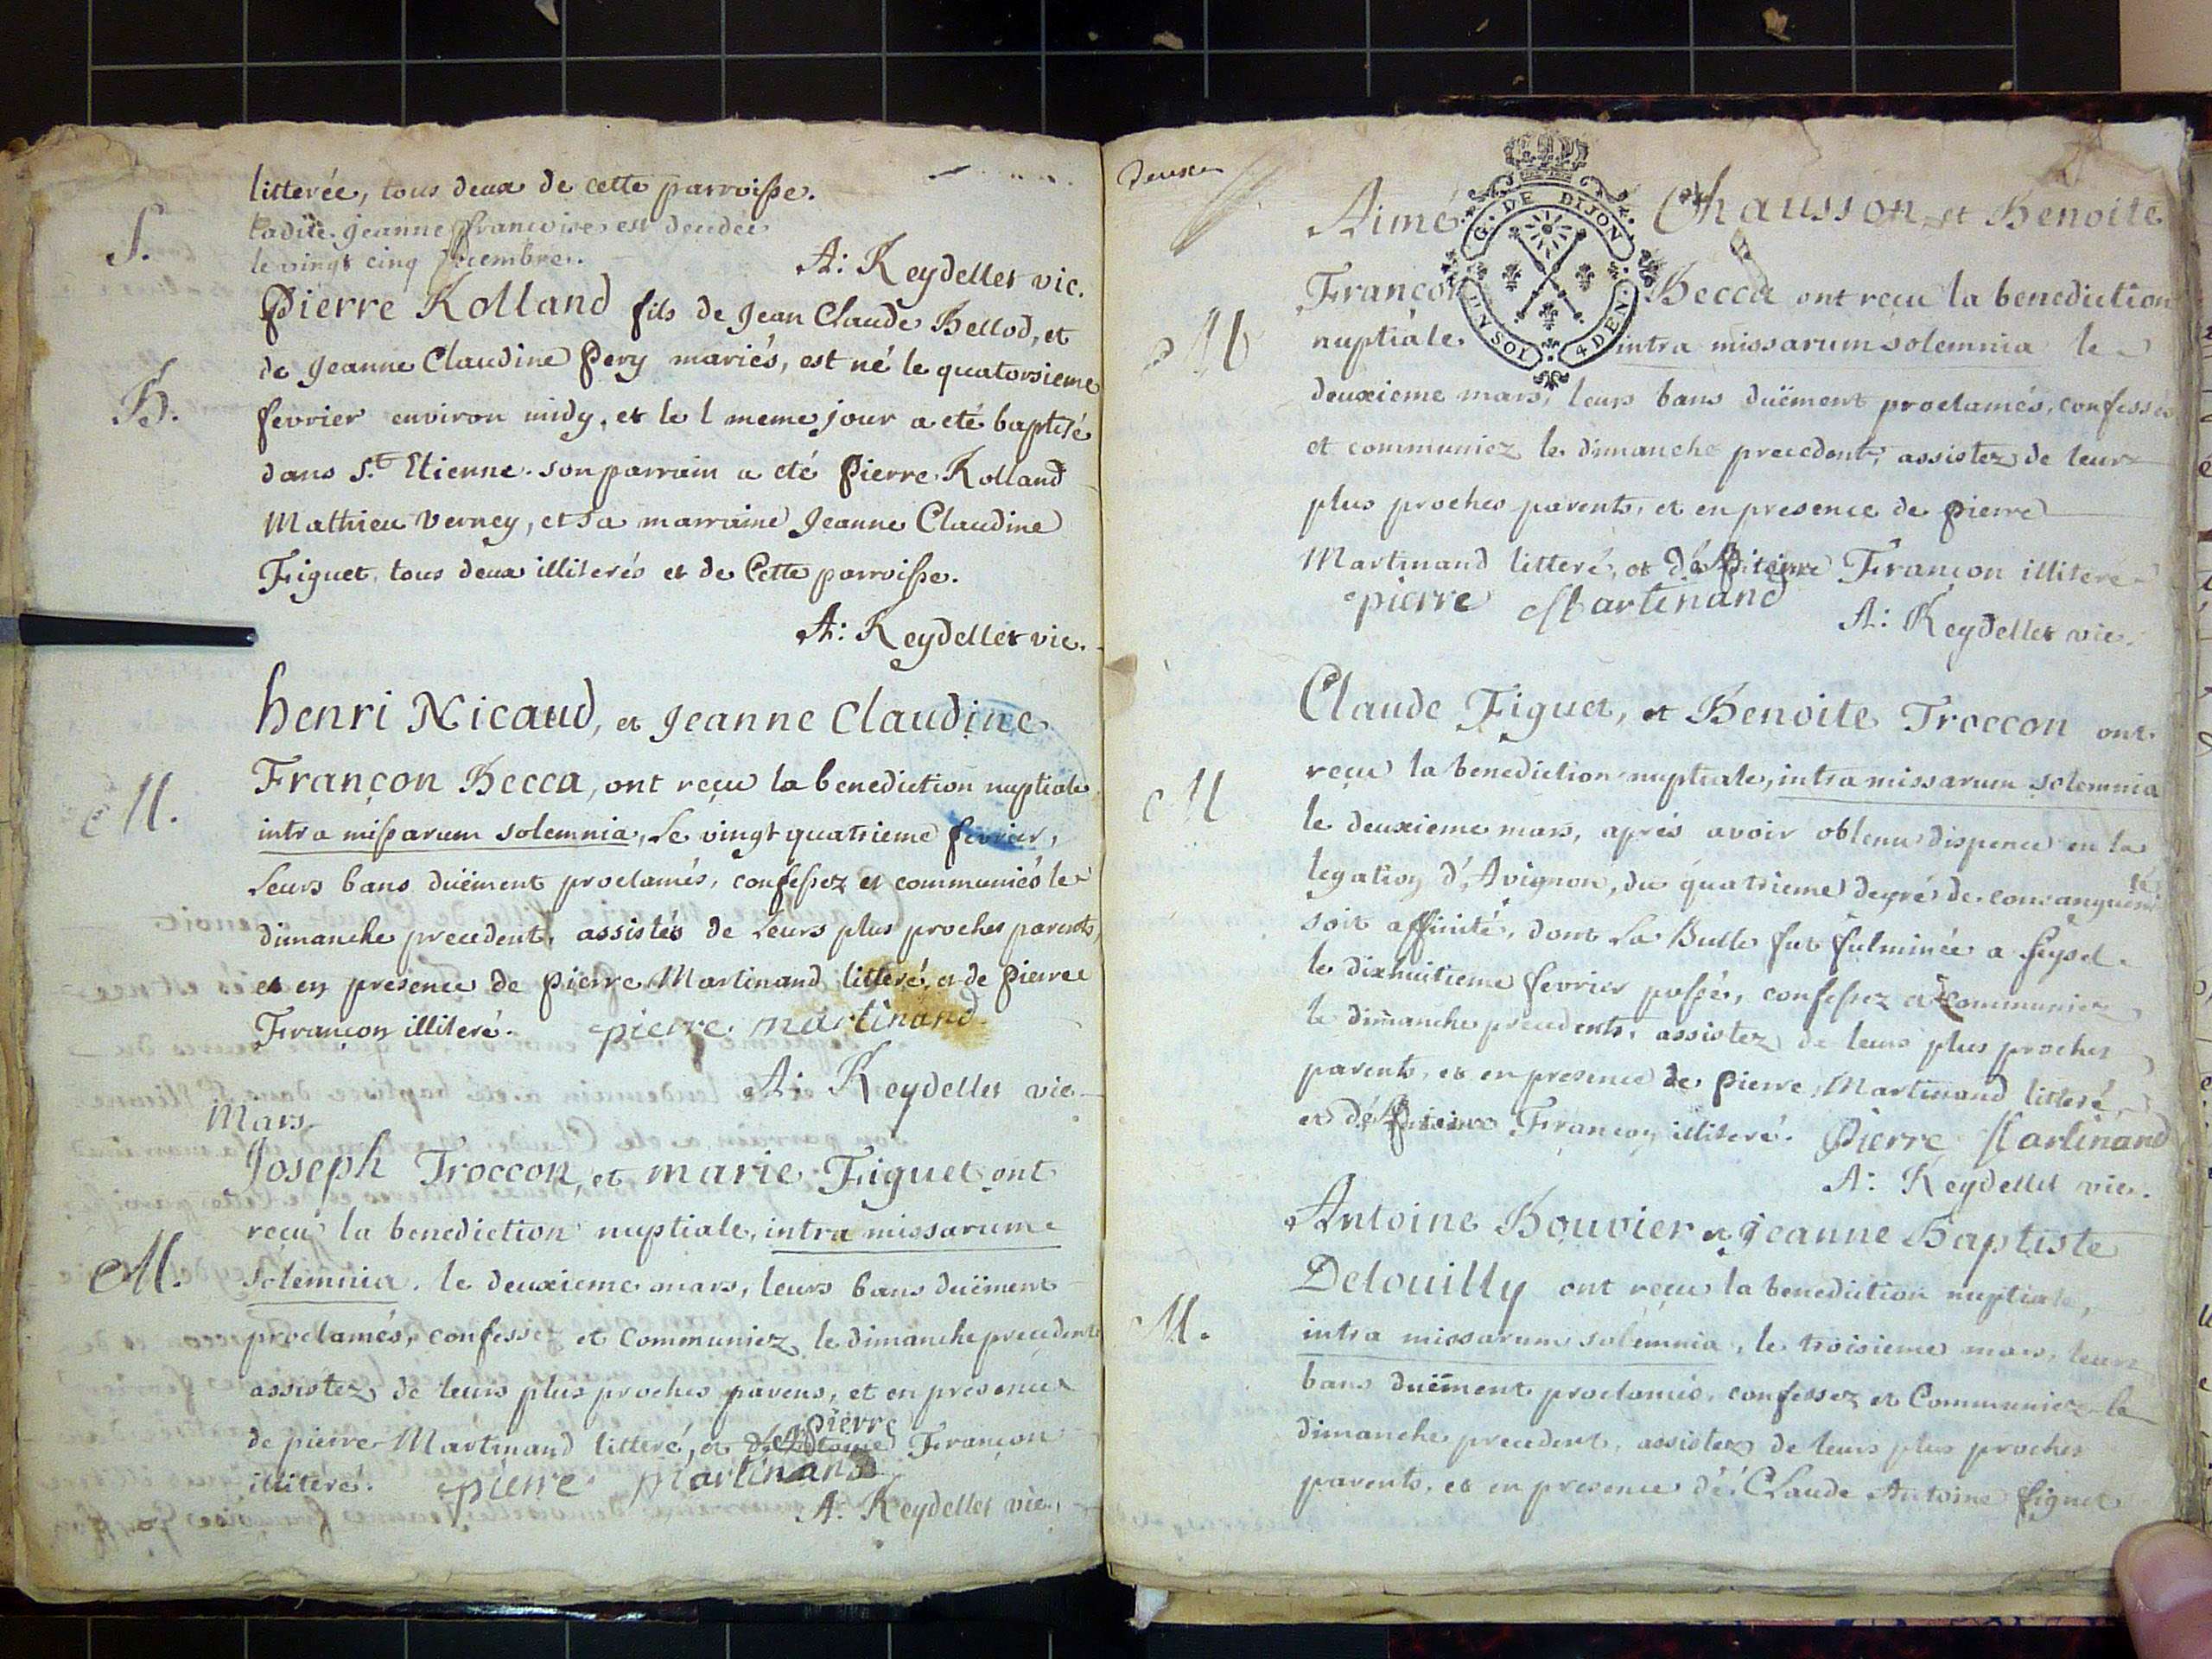 litterée, tous deux de cette parroisse.
S.
Ladite jeanne françoise est decedee
le vingt cinq decembre.
A: Reydellet vic.
Pierre Rolland fils de Jean Claude Bellod, et
de Jeanne Claudine Pery mariés, est né le quatorsieme
B.
fevrier environ midy, et le l meme jour a eté baptisé
dans St Etienne. son parrain a eté Pierre Rolland
Mathieu Verney, et sa marraine Jeanne Claudine
Figuet, tous deux illiterés et de Cette parroisse.
A: Reydellet vic.
henri Nicaud, et Jeanne Claudine
Françon Becca, ont reçu la benediction nuptiale
M.
intra missarum solemnia, Le vingt quatrieme fevrier,
Leurs bans duëment proclamés, confessez et communiés le
dimanche precedent, assistés de Leurs plus proches parents,
et en presence de pierre Martinand litteré, et de Pierre
Françon illiteré. pierre martinand
A: Reydellet vic.
Mars.
Joseph Troccon, et marie Figuet ont
reçu la benediction nuptiale, intra missarum
M.
solemnia, le deuxieme mars, leurs bans duëment
proclamés, confessez et communiez le dimanche precedent
assistez de leurs plus proches parens, et en presence
pierre
de pierre Martinand litteré, et de Antoine Françon
illiteré. pierre Martinand
A: Reydellet vic.
deuxe
G. DE DIJON
UN SOL 4 DEN.
Aimé Chausson et Benoite
Françon Becca ont reçu la benediction
M
nuptiale intra missarum solemnia le
deuxieme mars, leurs bans duëment proclamés, confessés
et communiez le dimanche precedent, assistez de leurs
plus proches parents, et en presence de pierre
Martinand litteré, et de Pierre Françon illiteré
pierre Martinand
A: Reydellet vic.
Claude Figuet, et Benoite Troccon ont
reçu la benediction nuptiale, intra missarum solemnia
M
le deuxieme mars, aprés avoir obtenu dispence en la
legation d'Avignon, du quatrieme degré de consanguinité
soit affinité, dont La Bulle fut fulminée a Seyssel
le dixhuitieme fevrier passé, confessez et communiez
le dimanche precedent, assistez de leurs plus proches
parents, et en presence de pierre Martinand litteré,
et de Pierre Françon illiteré. Pierre Martinand
A: Reydellet vic.
Antoine Bouvier et jeanne Baptiste
Delouilly ont reçu la benediction nuptiale,
M.
intra missarum solemnia, le troisieme mars, leurs
bans duëment proclamés, confessez et Communiez le
dimanche precedent, assistez de leurs plus proches
parents, et en presence de Claude Antoine figuet